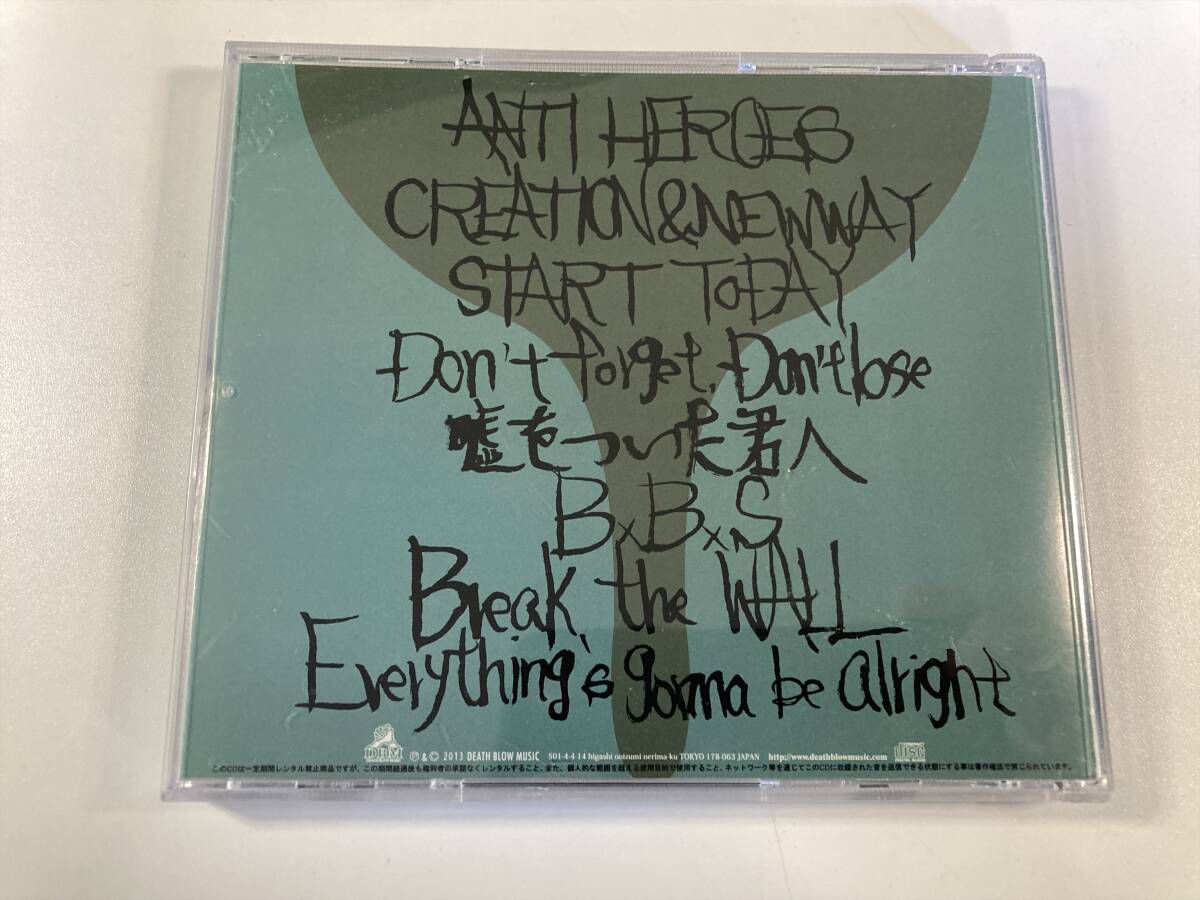 ANTI HEROES
CREATION&NEWWAY
START ToDAY
Don't forget, Don't lose
嘘をついた君へ
B×B×S
Break the WALL
Everything's gonna be alright
DBM
℗ & © 2013 DEATH BLOW MUSIC 501-4-4 14 higashi ooizumi nerima ku TOKYO 178-063 JAPAN http://www.deathblowmusic.com
このCDは一定期間レンタル禁止商品ですが、この期間経過後も権利者の承諾なくレンタルすること、また、個人的な範囲を超える使用目的で使用すること、ネットワーク等を通じてこのCDに収録された音を送信できる状態にする事は著作権法で禁じられています。